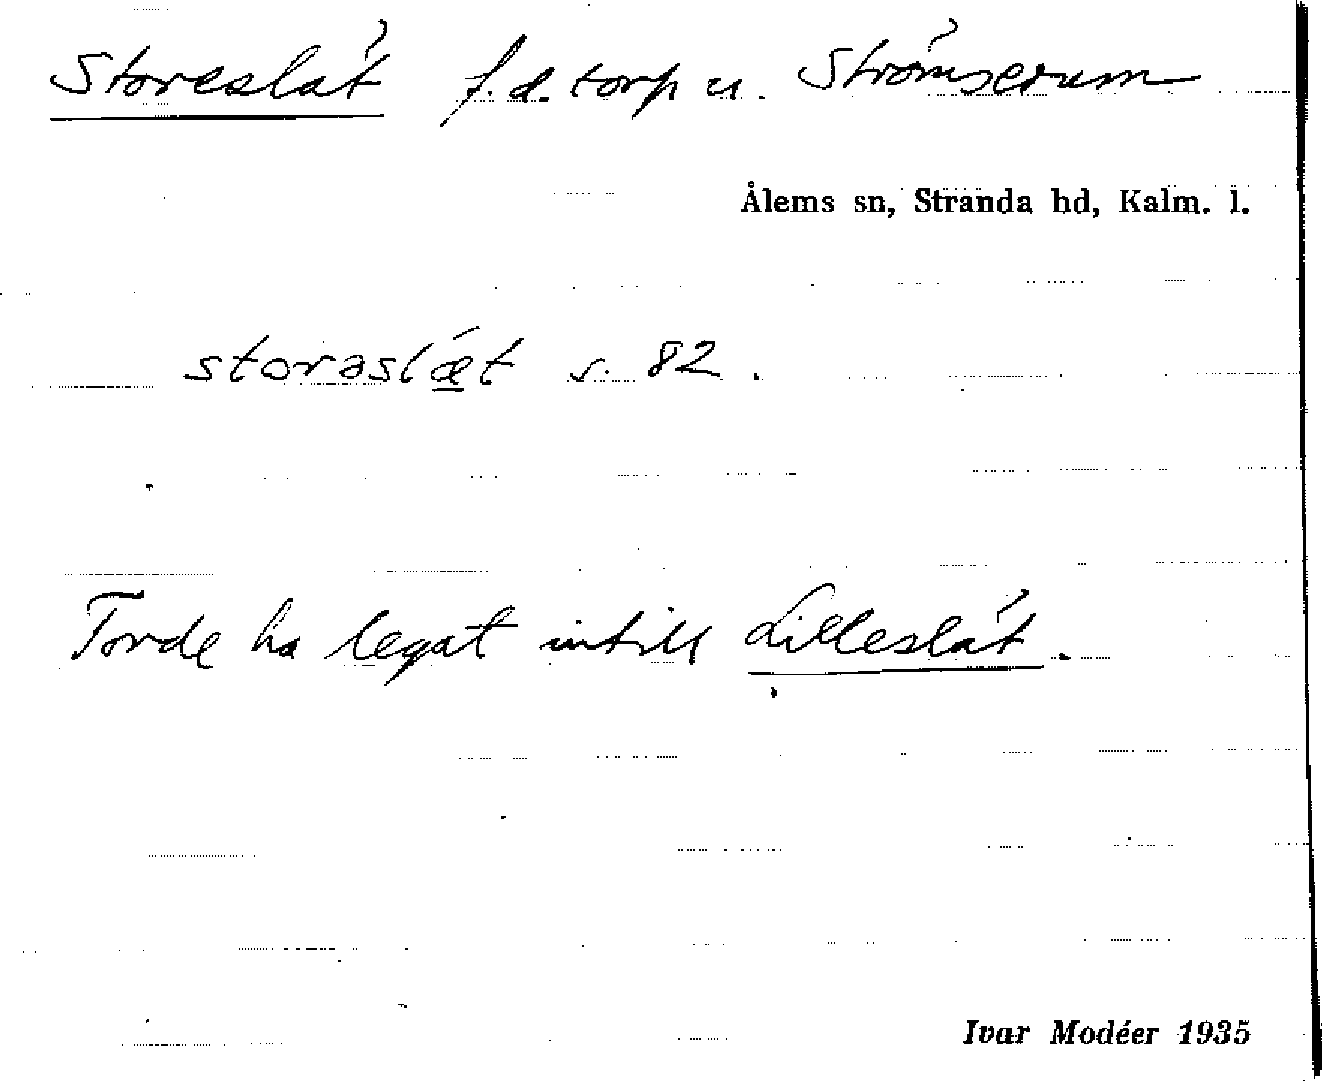 Storeslåt f.d. torp u. Strömserum
Ålems sn, Stranda hd, Kalm. l.
storəslǽ̱t s. 82.
Torde ha legat intill Lilleslåt.
Ivar Modéer 1935